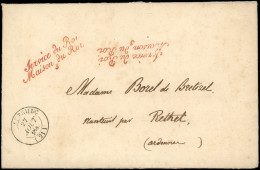 Service du Roi
Maison du Roi
Service du Roi
Maison du Roi
Madame Borel de Bretizel
par
Rethel
(ardennes)